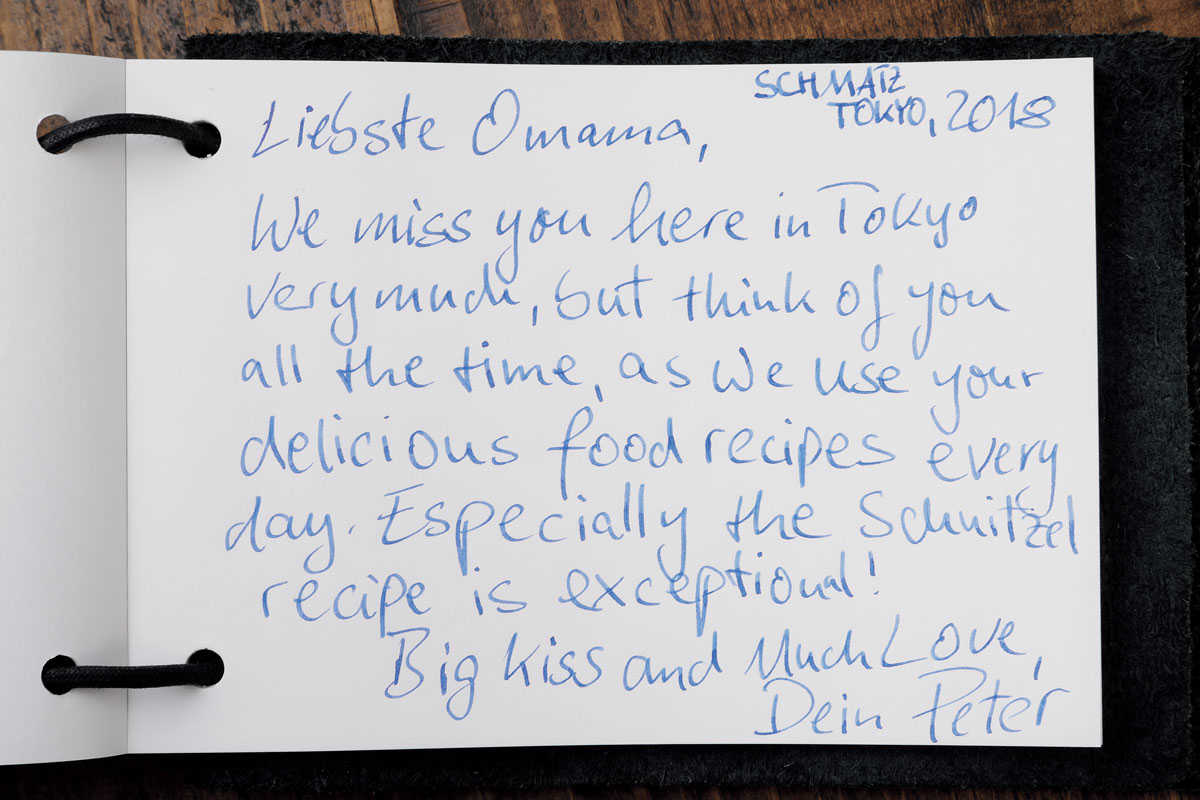 SCHMATZ
TOKYO, 2018
Liebste Omama,
We miss you here in Tokyo
very much, but think of you
all the time, as we use your
delicious food recipes every
day. Especially the Schnitzel
recipe is exceptional!
Big Kiss and Much Love,
Dein Peter